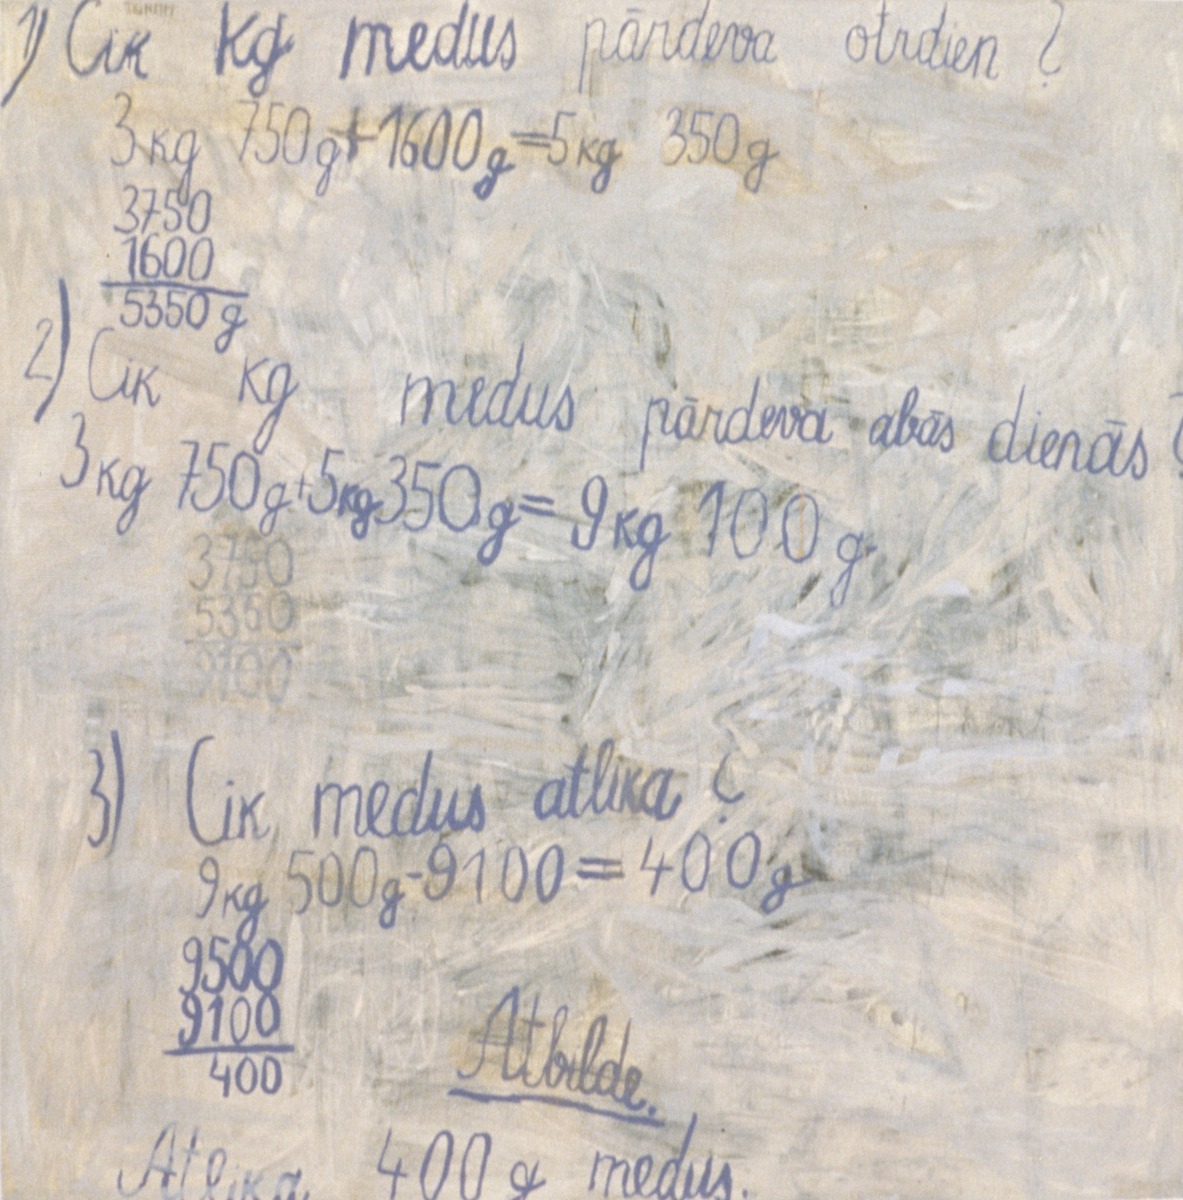 1) Cik kg medus pārdeva otrdien?
3kg 750g+1600g=5kg 350g
3750
1600
5350 g
2) Cik kg medus pārdeva abās dienās?
3kg 750g+5kg350g=9kg 100g
3750
5350
9100
3) Cik medus atlika?
9kg 500g-9100=400g
9500
9100
400
Atbilde.
Atlika 400 g medus.